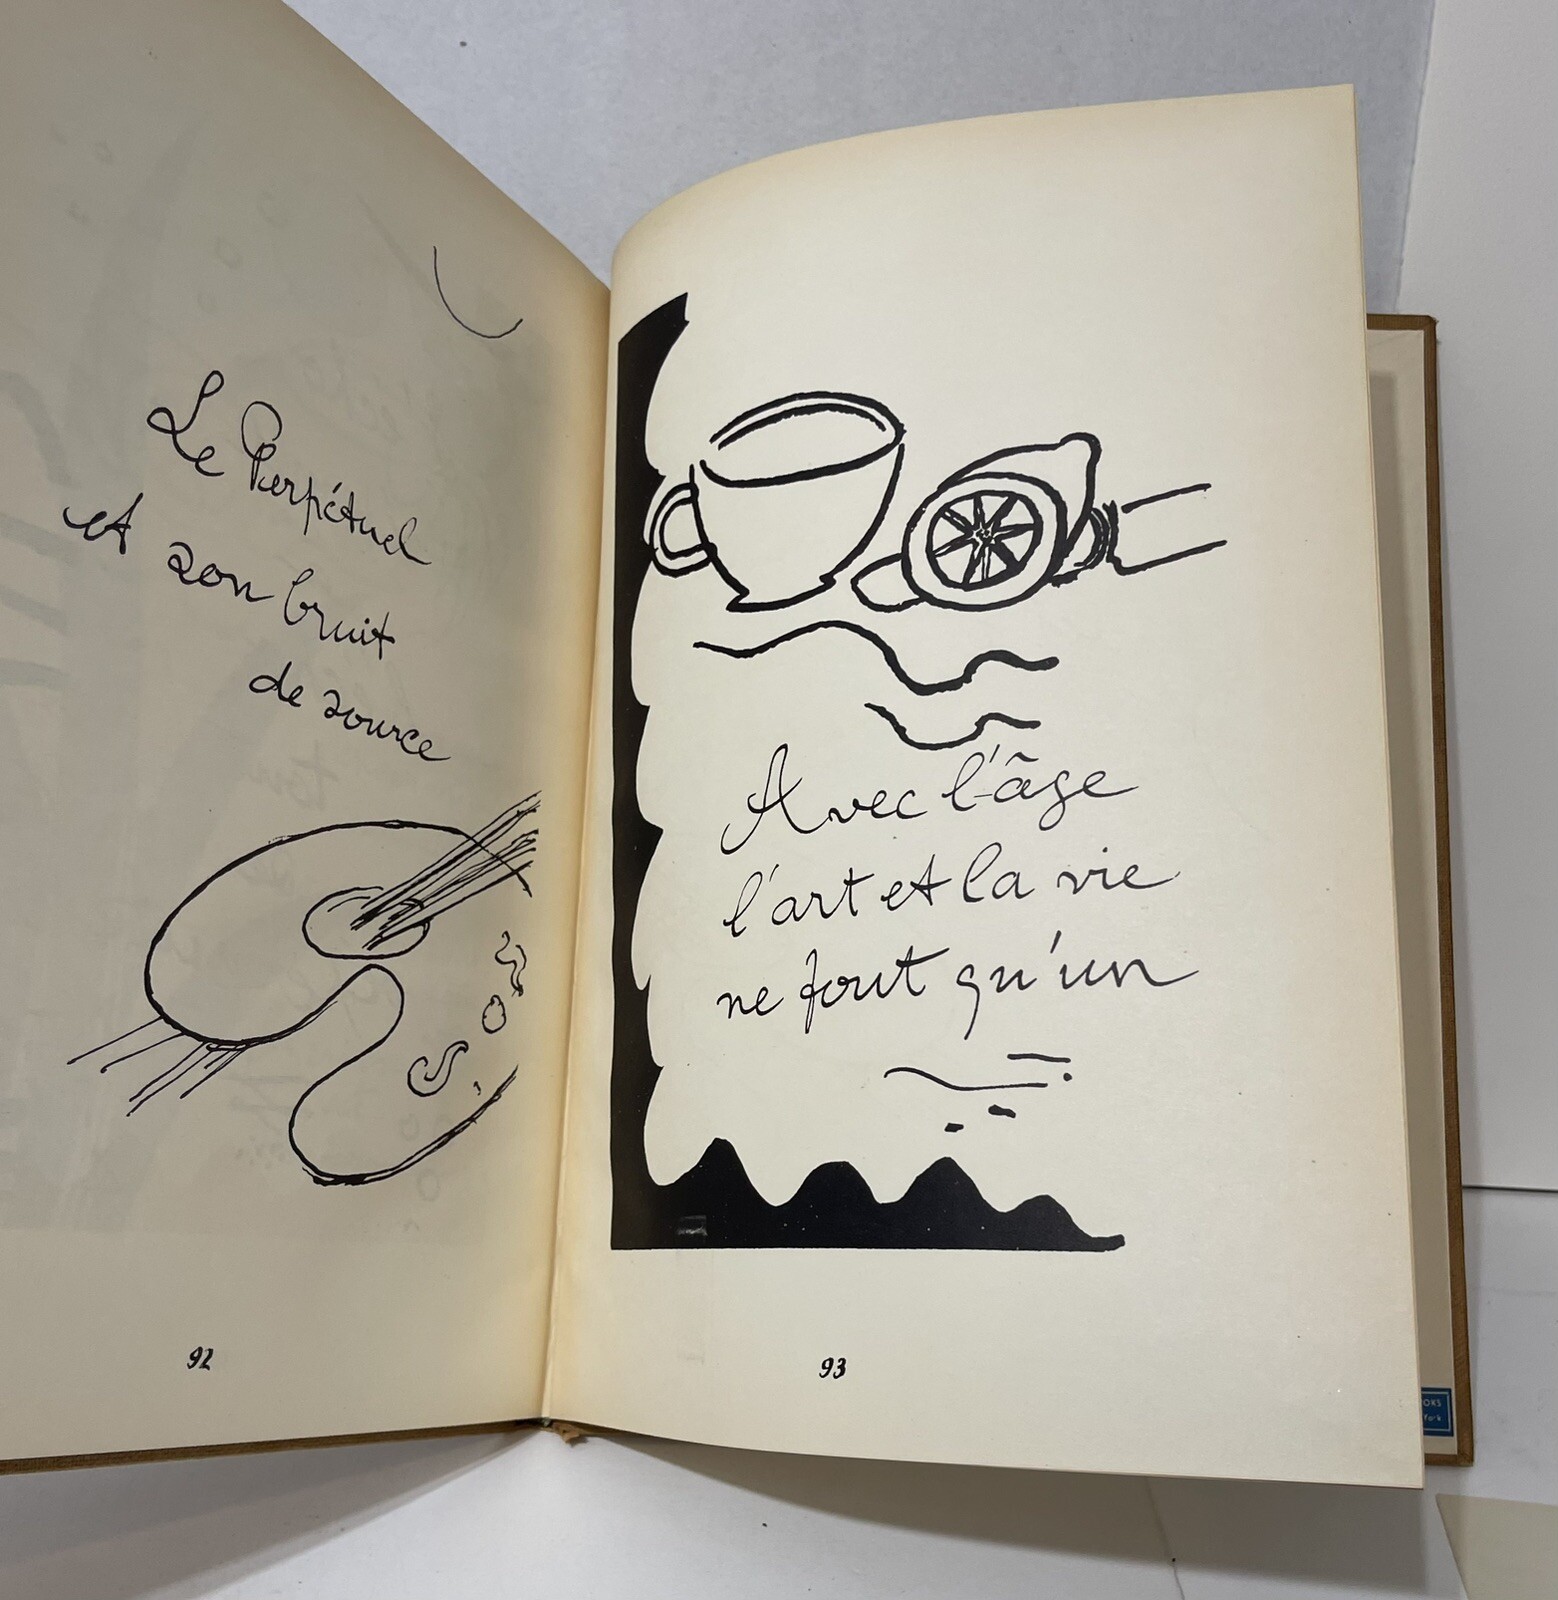 Le Perpétuel
et son bruit
de source
92
Avec l'âge
l'art et la vie
ne font qu'un
93
OKS
York